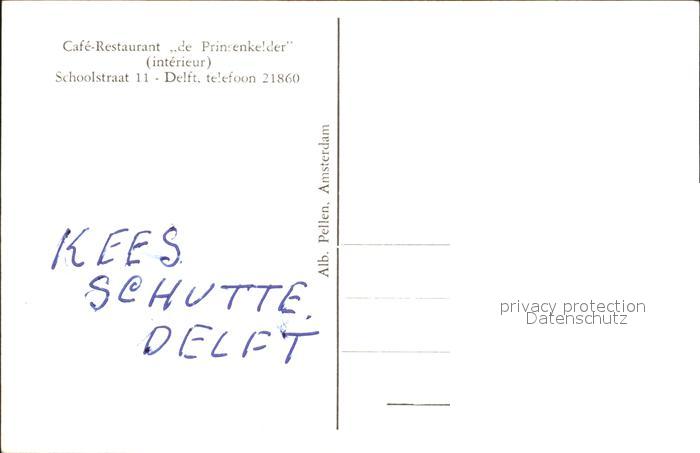 Café-Restaurant „de Prinsenkelder”
(intérieur)
Schoolstraat 11 - Delft, telefoon 21860
Alb. Pellen, Amsterdam
KEES
SCHUTTE.
DELFT
privacy protection
Datenschutz